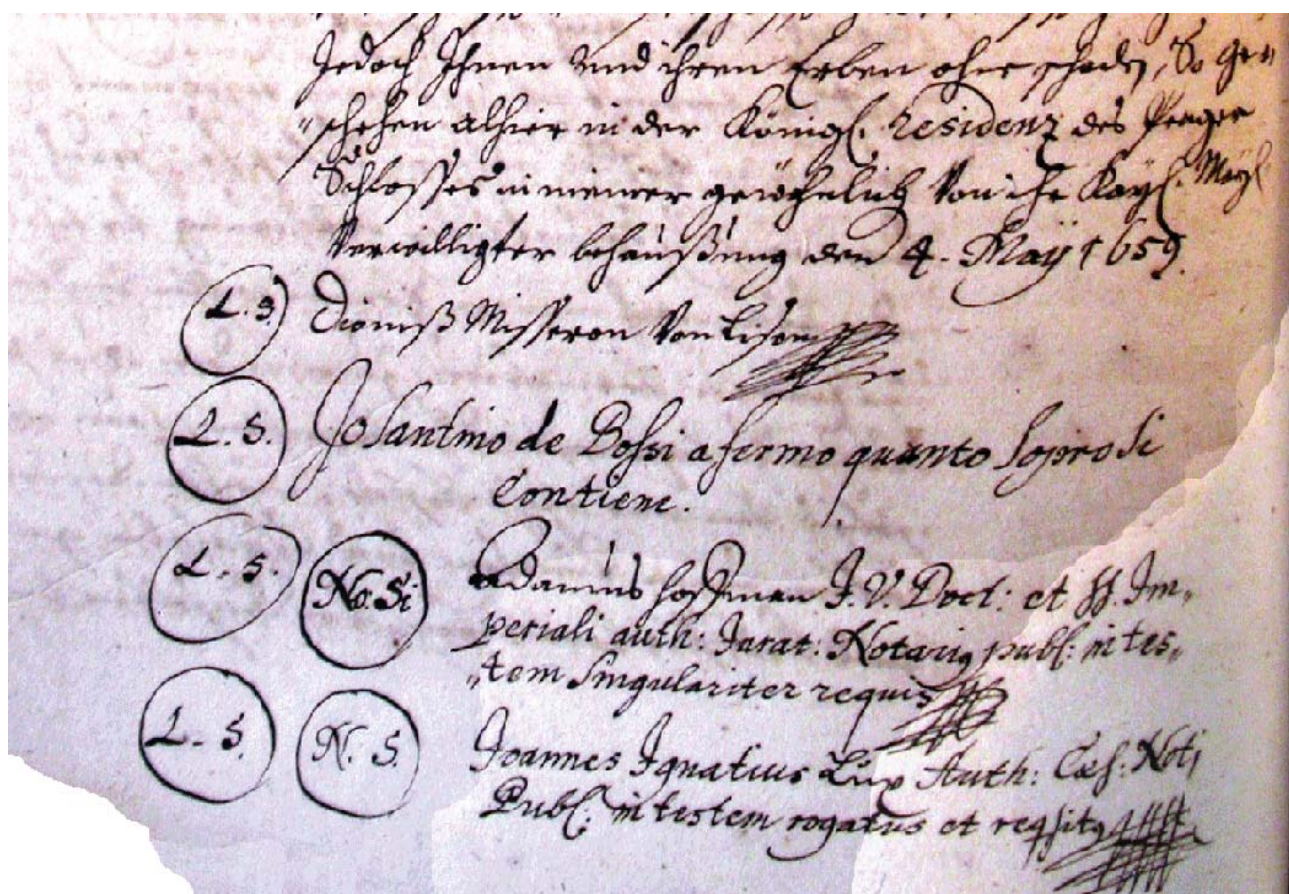 Jedoch Ihnen und ihren Erben ohne schaden, So ge„
„schehen alhier in der Königl. Residenz des Prager
Schlosses in meiner gewöhnlich von ihr Kayl. Mayl
Verwilligter behaußung den 4. Maÿ 1659.
L. S. Dioniß Misseron Von Lison
L. S. Jo Santino de Bossi afermo quanto sopra si
Contiene.
L. S. No. Si Adamus Hoffman J. V. Doct: et SS. Im„
periali auth: Jurat: Notariq publ: in tes„
„tem singulariter requis
L. S. N. S. Joannes Ignatius Lux Auth: Cæs: Noti
Publ: in testem rogatus et reqsitq